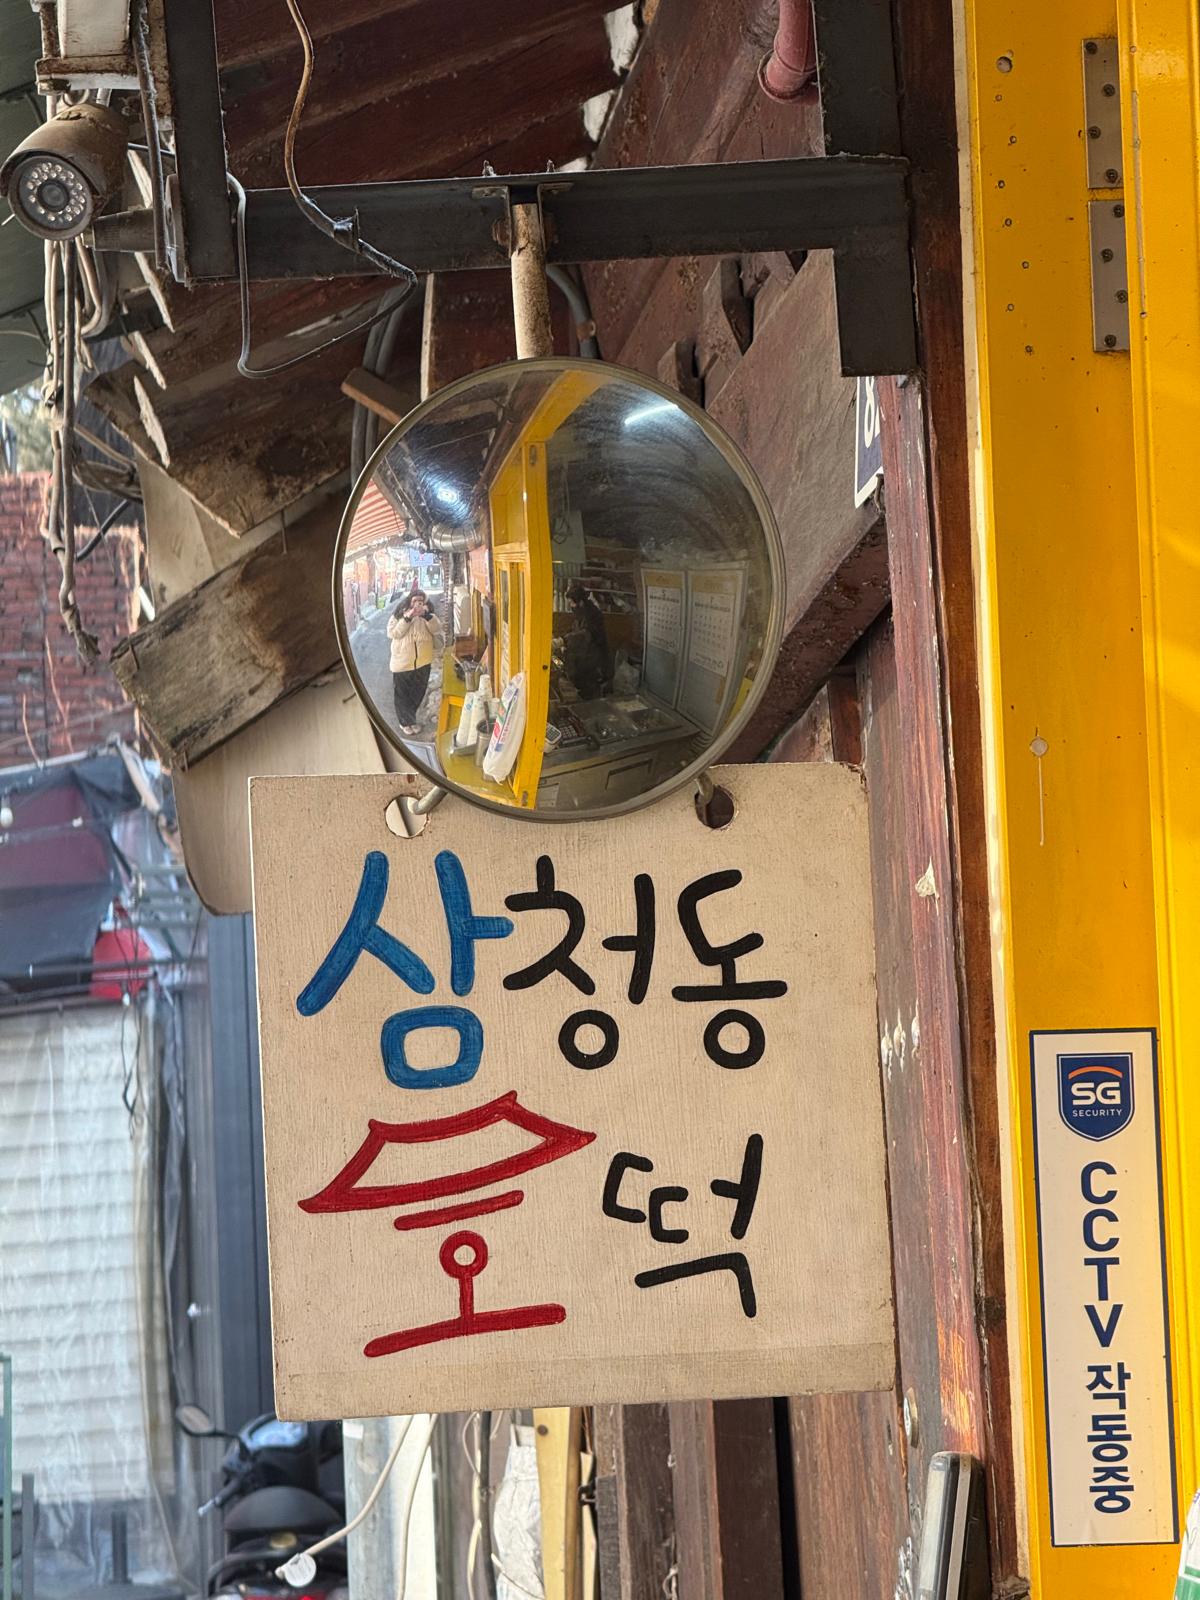 삼청동
호떡
SG
SECURITY
CCTV 작동중